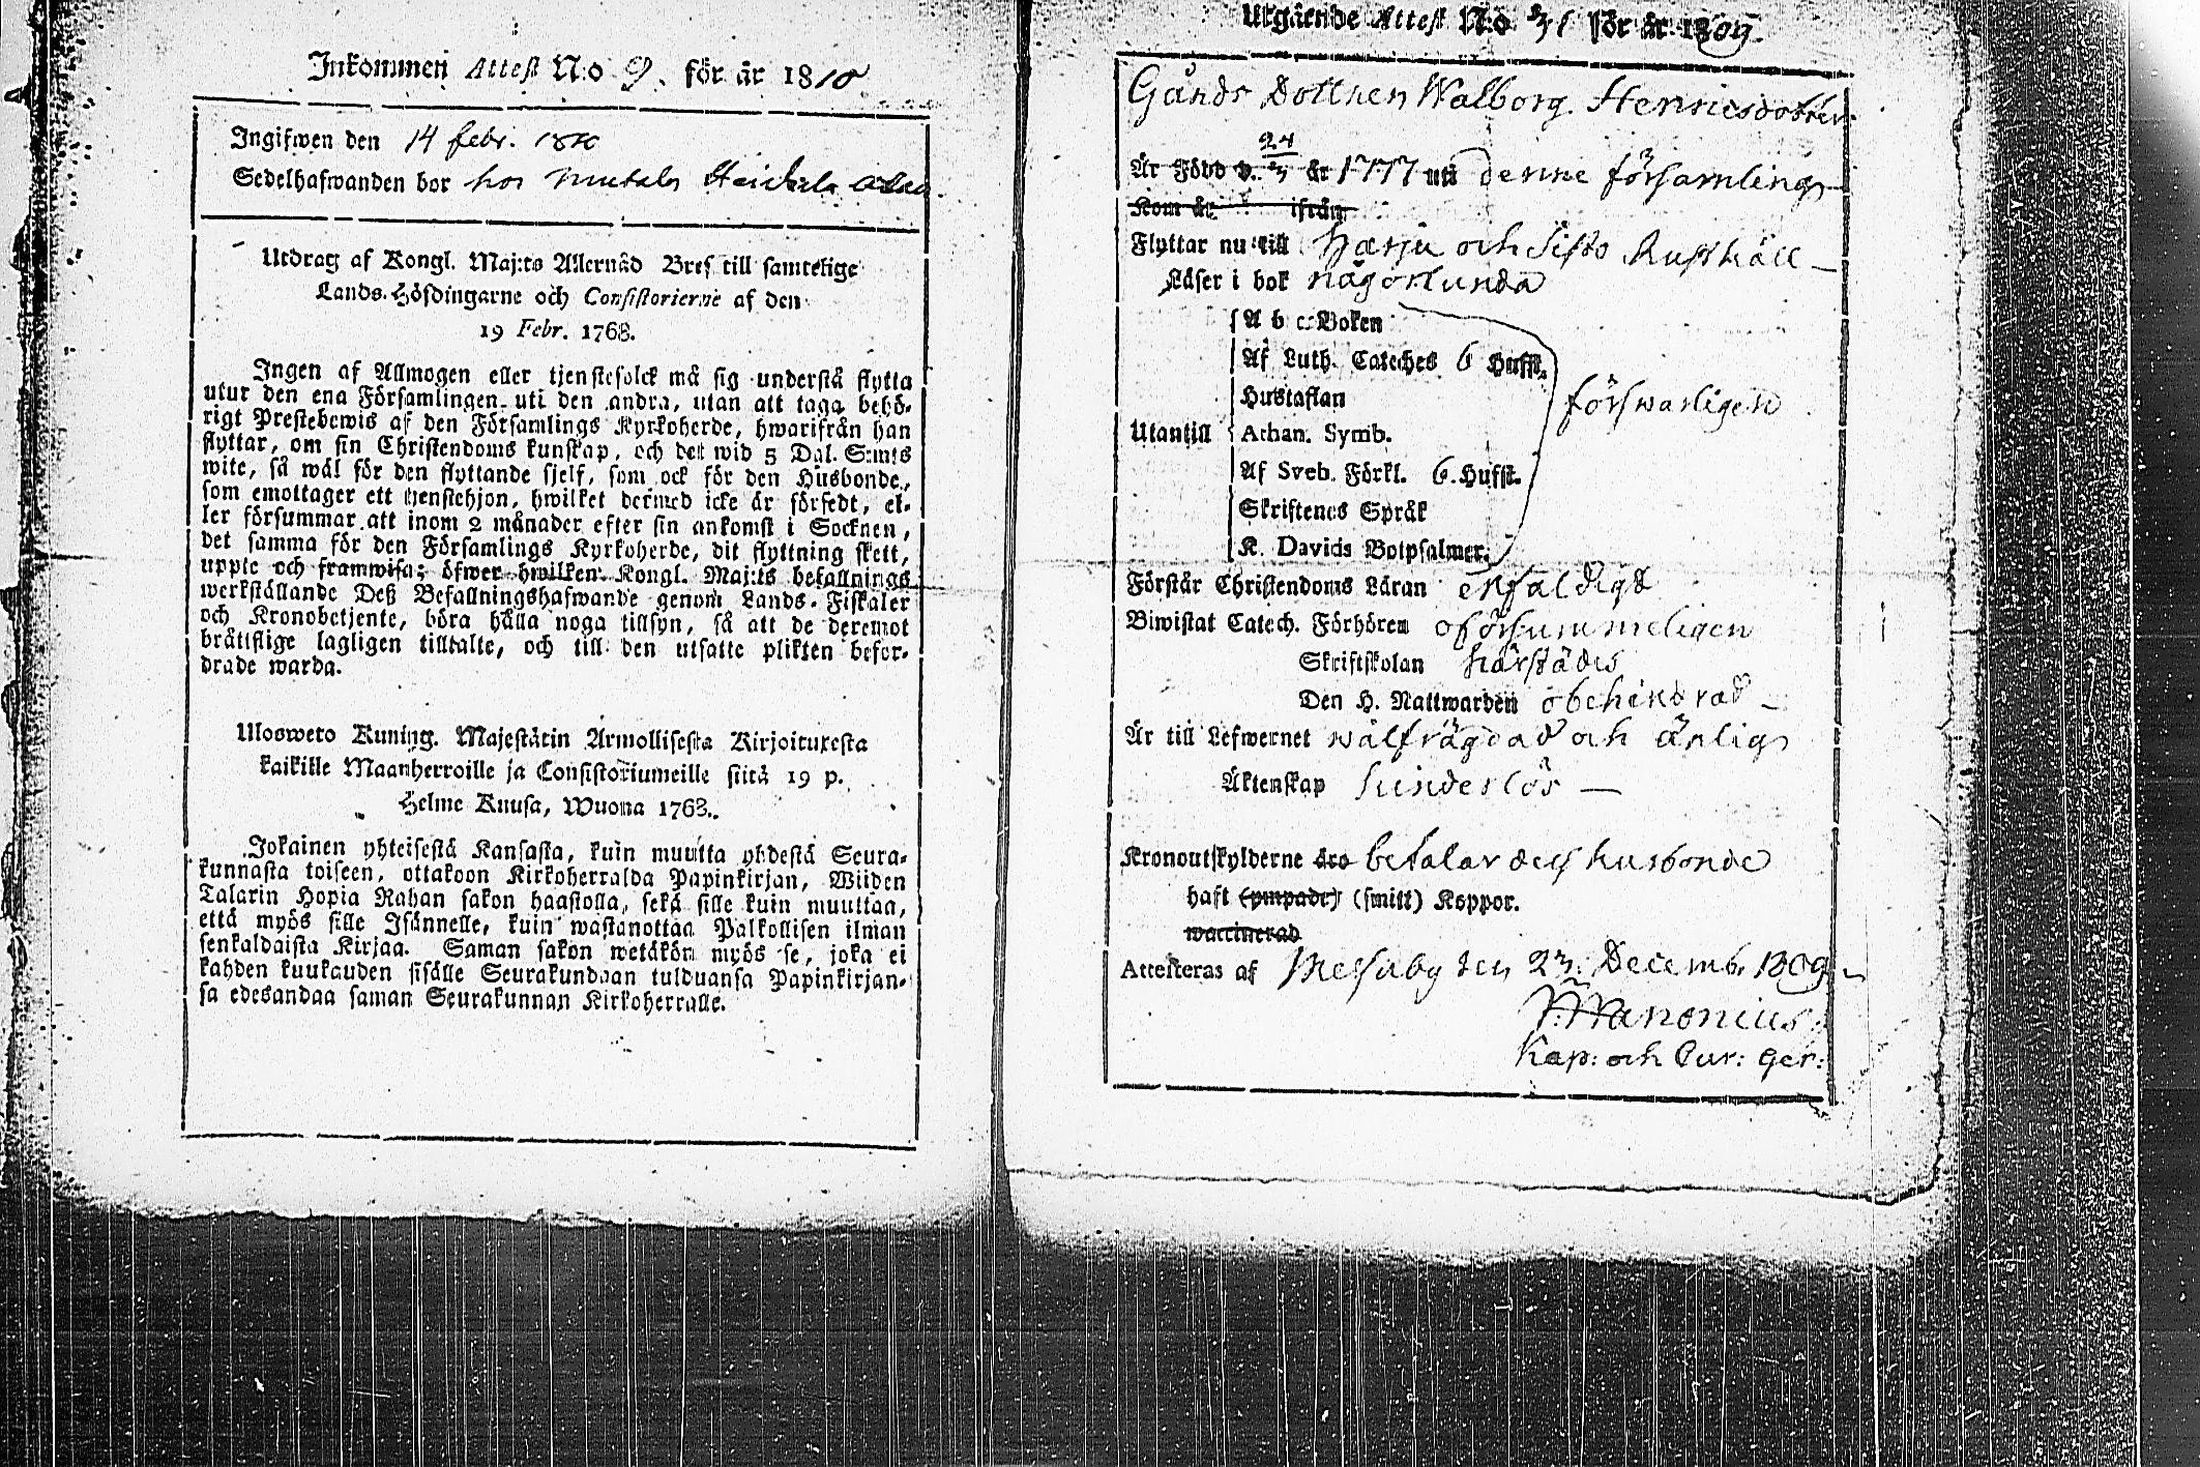 Inkommen Attest N:o 9. för år 1810
Ingifwen den 14 febr. 1810
Sedelhafwanden bor hos
Utdrag af Kongl. Maj:ts Allernåd Bref till samtelige
Lands-Höfdingarne och Consistorierne af den
19 Febr. 1768.
Ingen af Allmogen eller tjenstefolck må sig understå flytta
utur den ena Församlingen uti den andra, utan att taga behö-
rigt Prestebewis af den Församlings Kyrkoherde, hwarifrån han
flyttar, om sin Christendoms kunskap, och det wid 5 Dal. S:mts
wite, så wäl för den flyttande sjelf, som ock för den Husbonde,
som emottager ett tjenstehjon, hwilket dermed icke är försedt, el-
ler försummar att inom 2 månader efter sin ankomst i Socknen,
det samma för den Församlings Kyrkoherde, dit flyttning skett,
uppte och framwisa; öfwer hwilken Kongl. Maj:ts befallnings
werkställande Deß Befallningshafwande genom Lands-Fiskaler
och Kronobetjente, böra hålla noga tillsyn, så att de deremot
bråttslige lagligen tilltalte, och till den utsatte plikten befor-
drade warda.
Ulosweto Kuning. Majestätin Armollisesta Kirjoituxesta
kaikille Maanherroille ja Consistoriumeille siitä 19 p.
Helme Kuusa, Wuonna 1768.
Jokainen yhteisestä Kansasta, kuin muutta yhdestä Seura-
kunnasta toiseen, ottakoon Kirkoherralda Papinkirjan, Wiiden
Talarin Hopia Rahan sakon haastolla, sekä sille kuin muuttaa,
että myös sille Isännelle, kuin wastanottaa Palkollisen ilman
senkaldaista Kirjaa. Saman sakon wetäkön myös se, joka ei
kahden kuukauden sisälle Seurakundaan tulduansa Papinkirjan-
sa edesandaa saman Seurakunnan Kirkoherralle.
Utgående Attest N:o för år 1809.
Gårds Dottren Walborg Henricsdotter
Är Född d. 24/3 år 1777 uti denne församling
Kom år ifrån
Flyttar nu till Harju och Sifto Rusthåll
Läser i bok någorlunda
A b c Boken
Af Luth. Cateches 6 Hufst.
Hustaflan
Utantill Athan. Symb.
Af Sveb. Förkl. 6. Hufst.
Skriftenes Språk
K. Davids Botpsalmer.
förswarligen
Förstår Christendoms Läran enfaldigt
Biwistat Catech. Förhören oförsummeligen
Skriftskolan härstädes
Den H. Nattwarden obehindrad
Är till Lefwernet wälfrägdad och ärlig
Äktenskap hinderlös
Kronoutskylderne äro betalar dess husbonde
haft (ympade) (smitt) Koppor.
waccinerad
Attesteras af Messuby den 23. Decemb. 1809
Kap: och Cur: ger: